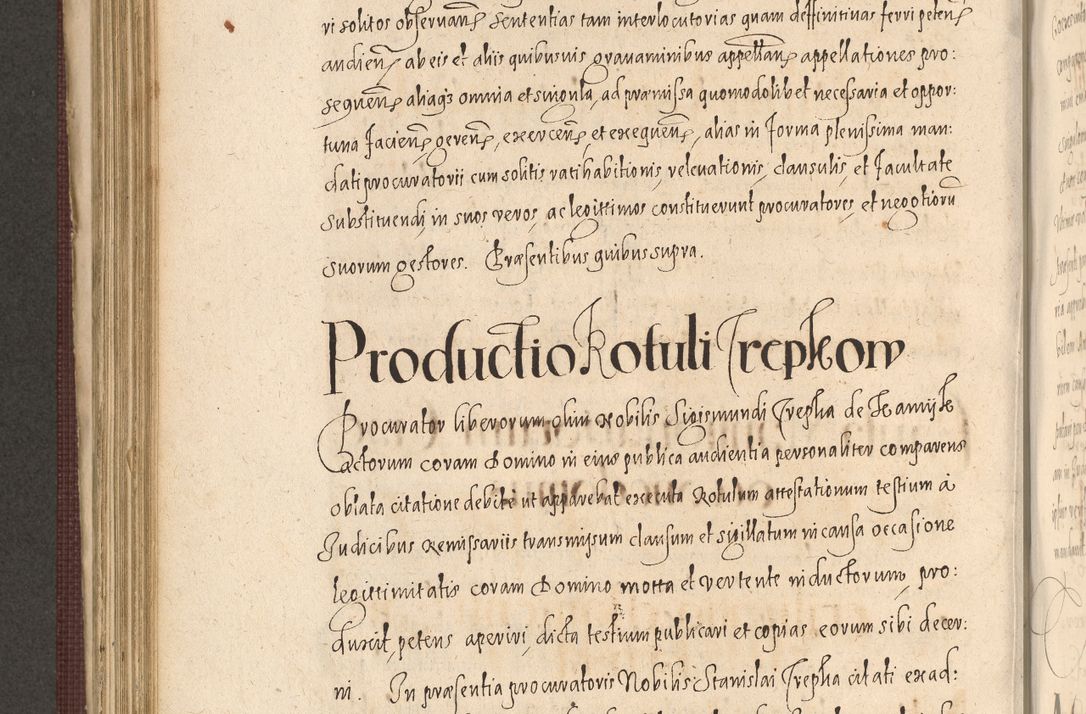 ri solitos observan. Sententias tam interlocutorias quam deffinitivas ferri peten.
audien. ab eis et aliis quibusvis gravaminibus appellan. appellationes pro:
sequen. aliaq3 omnia et singula, ad præmissa quomodolibet necessaria et oppor:
tuna facien. geren. exercen. et exequen. alias in forma plenissima man:
dati procuratorii cum solitis ratihabitionis, relevationis, clausulis, et facultate
substituendi, in suos veros, ac legittimos constituerunt procuratores, et negotioru
suorum gestores. Præsentibus quibus supra.
Productio Rotuli Trepkom
Procurator liberorum olim Nobilis Sigismundi Trepka de
actorum coram Domino in eius publica audientia personaliter comparens
oblata citatione debite ut apparebat executa Rotulum attestationum testium à
Iudicibus Remissariis transmissum clausum et sigillatum in causa occasione
legittimitatis coram Domino motta et vertente inductorum, pro:
duxit, petens aperiri, dicta testium publicari et copias eorum sibi decer:
ni. In præsentia procuratoris Nobilis Stanislai Trepka citati ex ad: